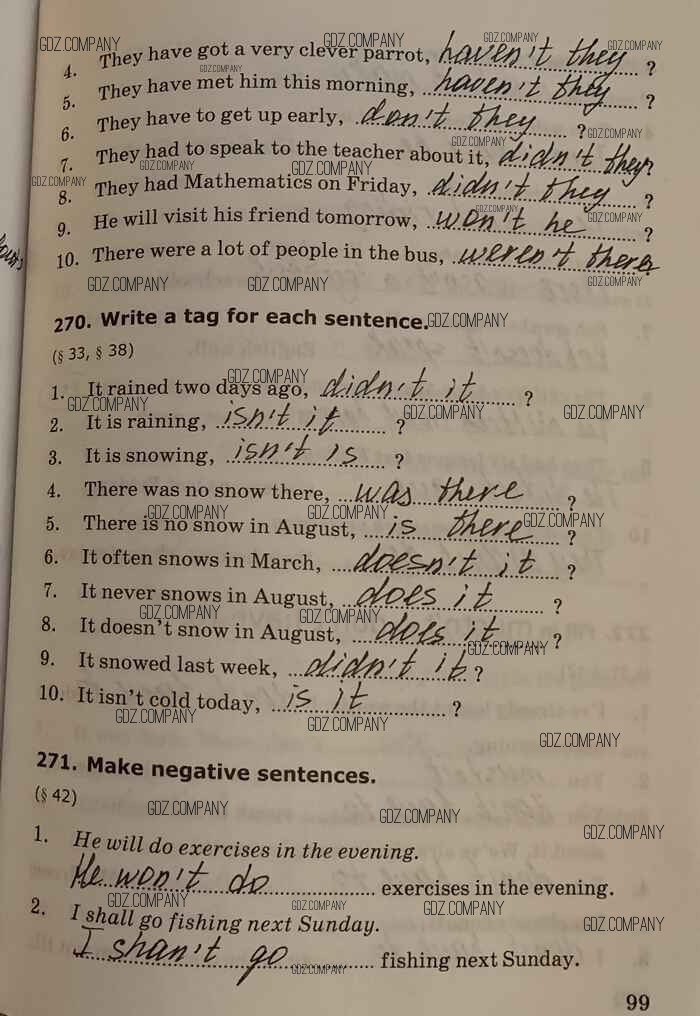 4. They have got a very clever parrot, haven't they ?
5. They have met him this morning, haven't they ?
6. They have to get up early, don't they ?
7. They had to speak to the teacher about it, didn't they?
8. They had Mathematics on Friday, didn't they ?
9. He will visit his friend tomorrow, won't he ?
10. There were a lot of people in the bus, weren't there?
GDZ.COMPANY
270. Write a tag for each sentence.
(§ 33, § 38)
1. It rained two days ago, didn't it ?
2. It is raining, isn't it ?
3. It is snowing, isn't is ?
4. There was no snow there, was there ?
5. There is no snow in August, is there ?
6. It often snows in March, doesn't it ?
7. It never snows in August, does it ?
8. It doesn't snow in August, does it ?
9. It snowed last week, didn't it ?
10. It isn't cold today, is it ?
271. Make negative sentences.
(§ 42)
1. He will do exercises in the evening.
He won't do exercises in the evening.
2. I shall go fishing next Sunday.
I shan't go fishing next Sunday.
99